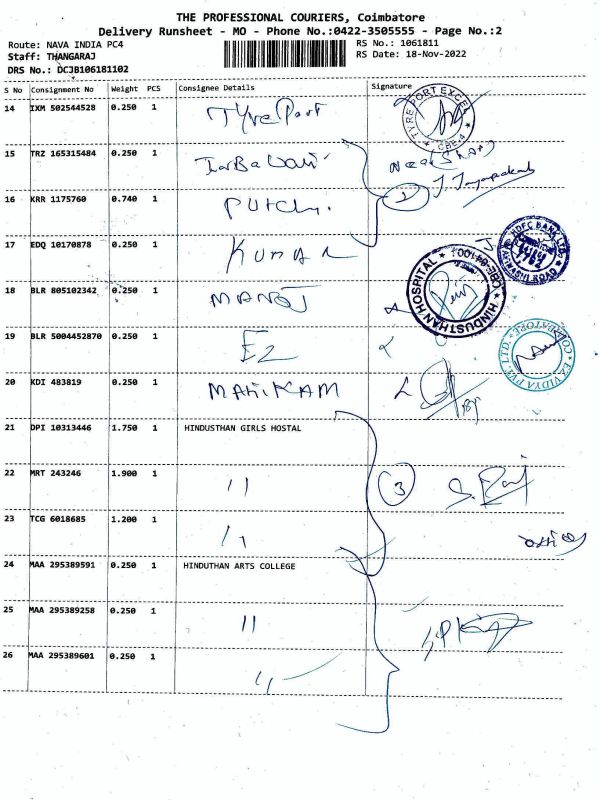 THE PROFESSIONAL COURIERS, Coimbatore
Delivery Runsheet - MO - Phone No.:0422-3505555 - Page No.:2
Route: NAVA INDIA PC4
RS No.: 1061811
Staff: THANGARAJ
RS Date: 18-Nov-2022
DRS No.: DCJB106181102
S No Consignment No Weight PCS Consignee Details Signature
14 IXM 502544528 0.250 1 Tyre Port
TYRE PORT EXCEL
CBE-4
15 TRZ 165315484 0.250 1
16 KRR 1175760 0.740 1 2
17 EDQ 10170878 0.250 1 KUMAR
HDFC BANK LTD
HINDUSTHAN HOSPITAL
18 BLR 805102342 0.250 1 MANOJ
19 BLR 5004452870 0.250 1 EZ
EZ VIDYA PVT. LTD.
COIMBATORE
20 KDI 483819 0.250 1 MANIKAM
21 DPI 10313446 1.750 1 HINDUSTHAN GIRLS HOSTAL
22 MRT 243246 1.900 1 11 3 S. Raj
23 TCG 6018685 1.200 1 11
office
24 MAA 295389591 0.250 1 HINDUTHAN ARTS COLLEGE
25 MAA 295389258 0.250 1 11
26 MAA 295389601 0.250 1 11